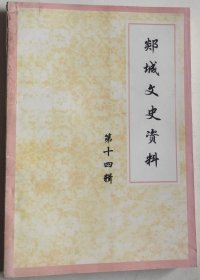 郯城文史资料
第十四辑